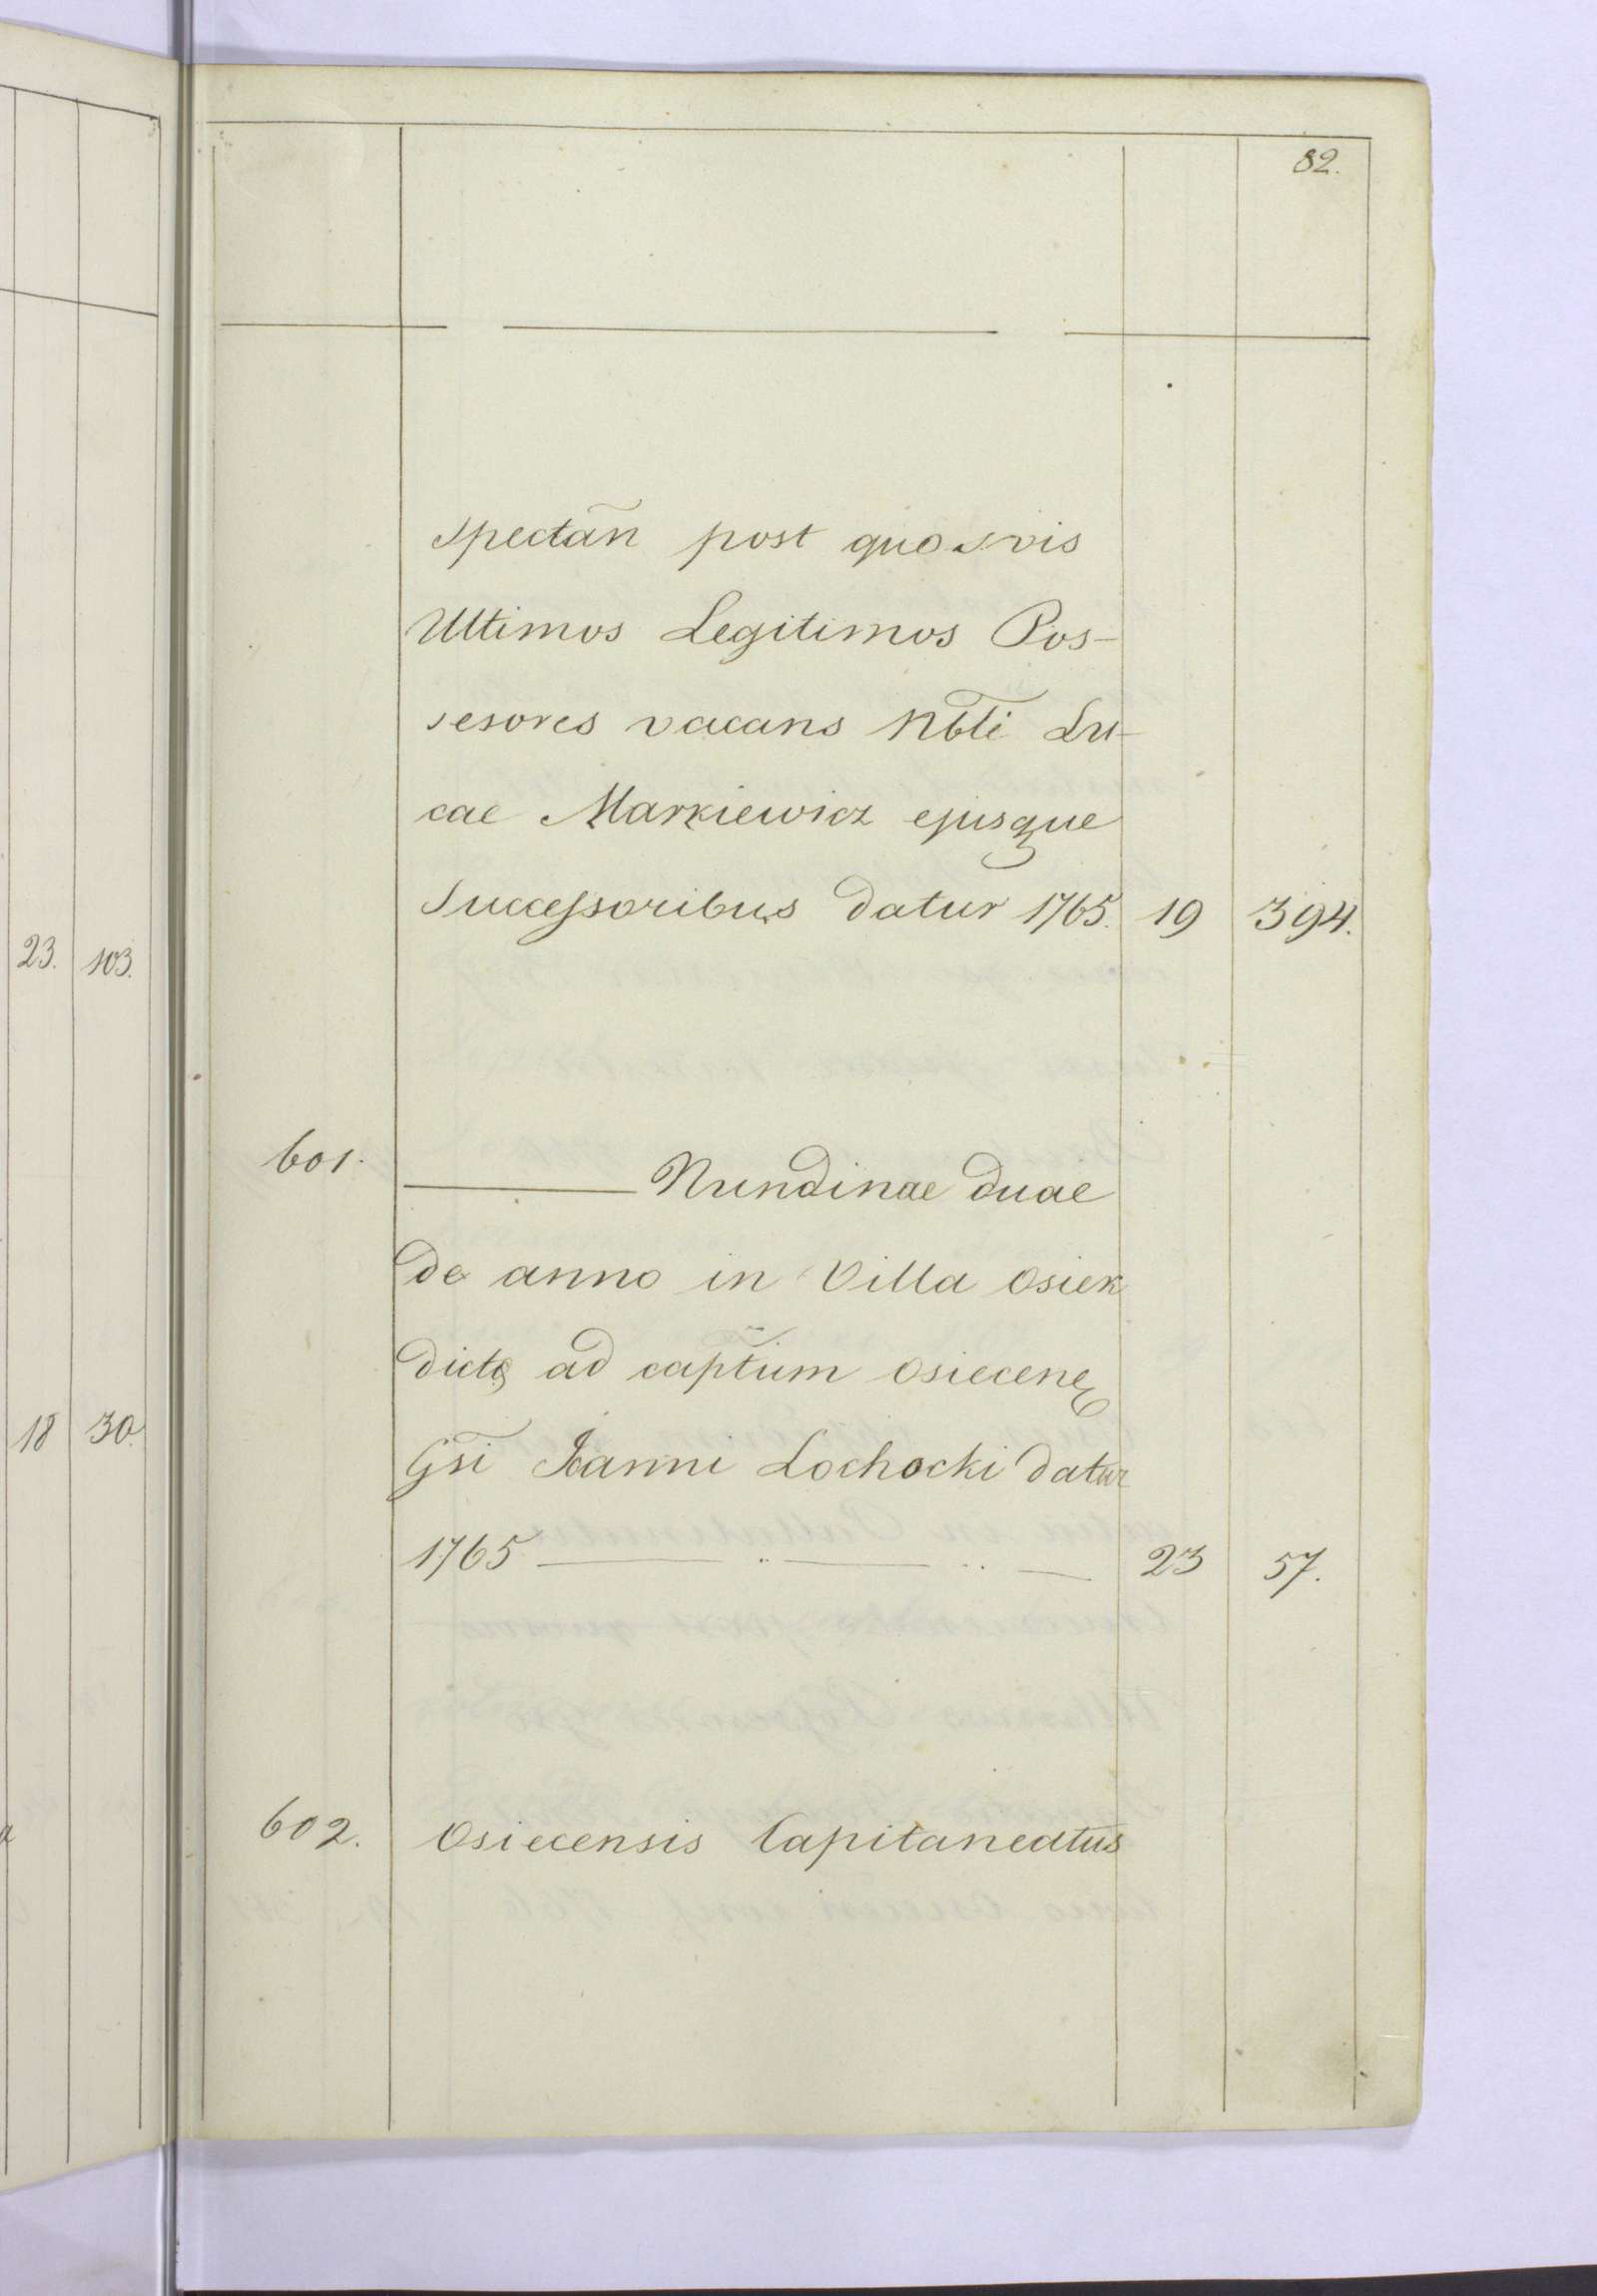 82.
spectan̄ post quosvis
Ultimos Legitimos Pos-
sesores vacans Nbli Lu-
cae Markiewicz ejusque
Successoribus datur 1765. 19 394.
23. 103.
601. Nundinae duae
de anno in Villa Osiek
dicta ad capt̄um Osiecen
18 30.
Gsi Joanni Lochocki datur
1765 23 57.
602. Osiecensis Capitaneatus